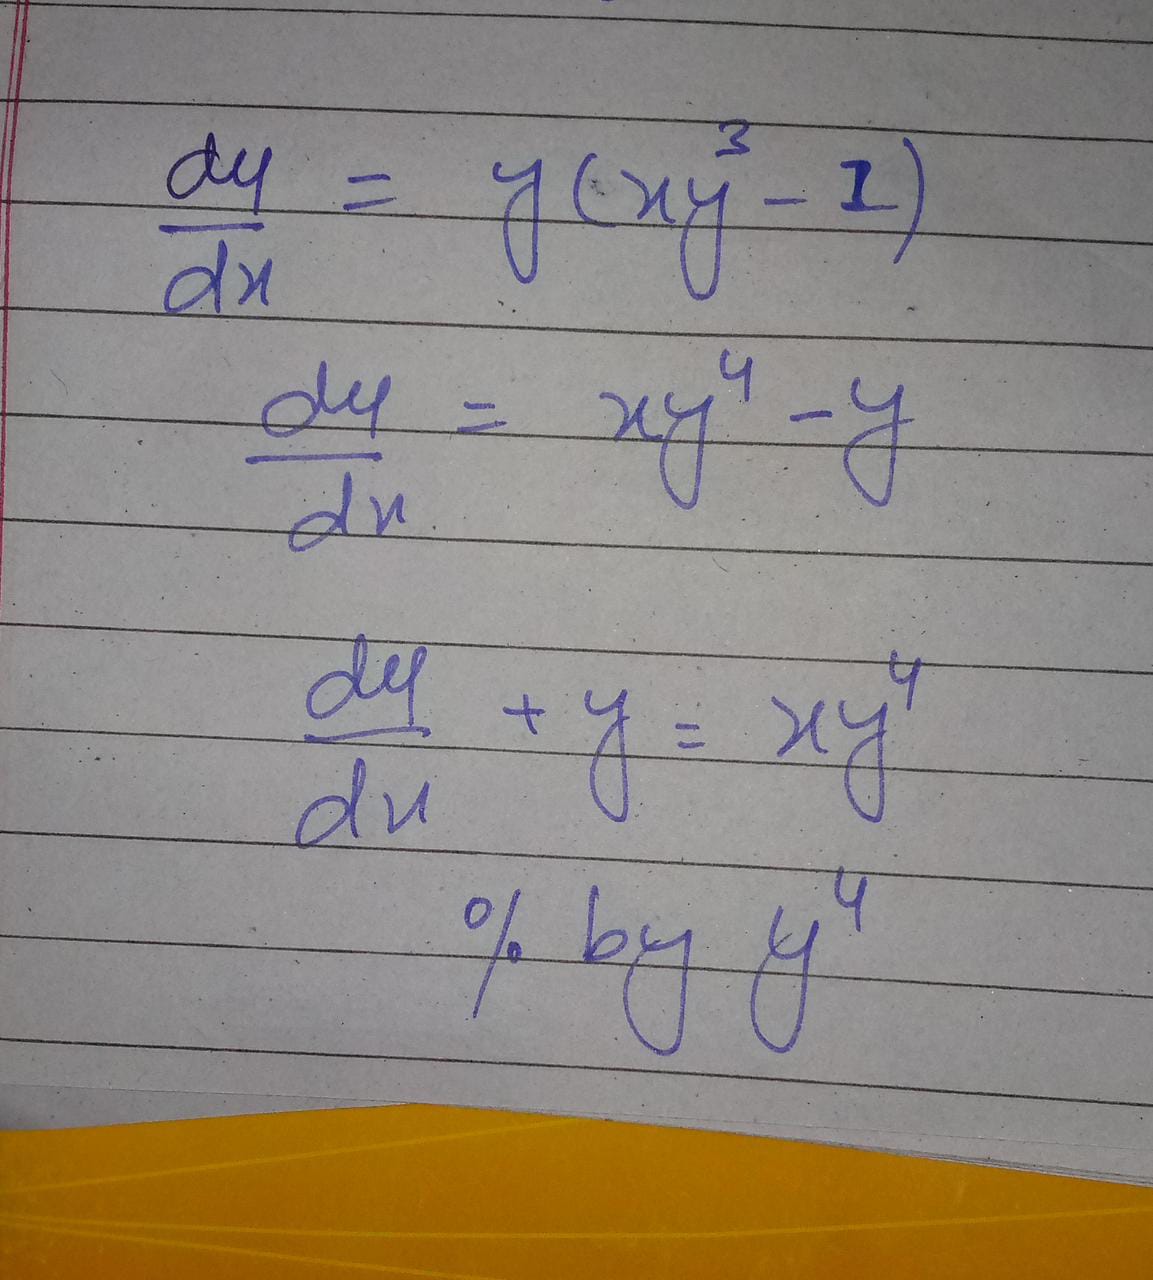 dy/dx = y(xy³ - 1)
dy/dx = xy⁴ - y
dy/dx + y = xy⁴
% by y⁴